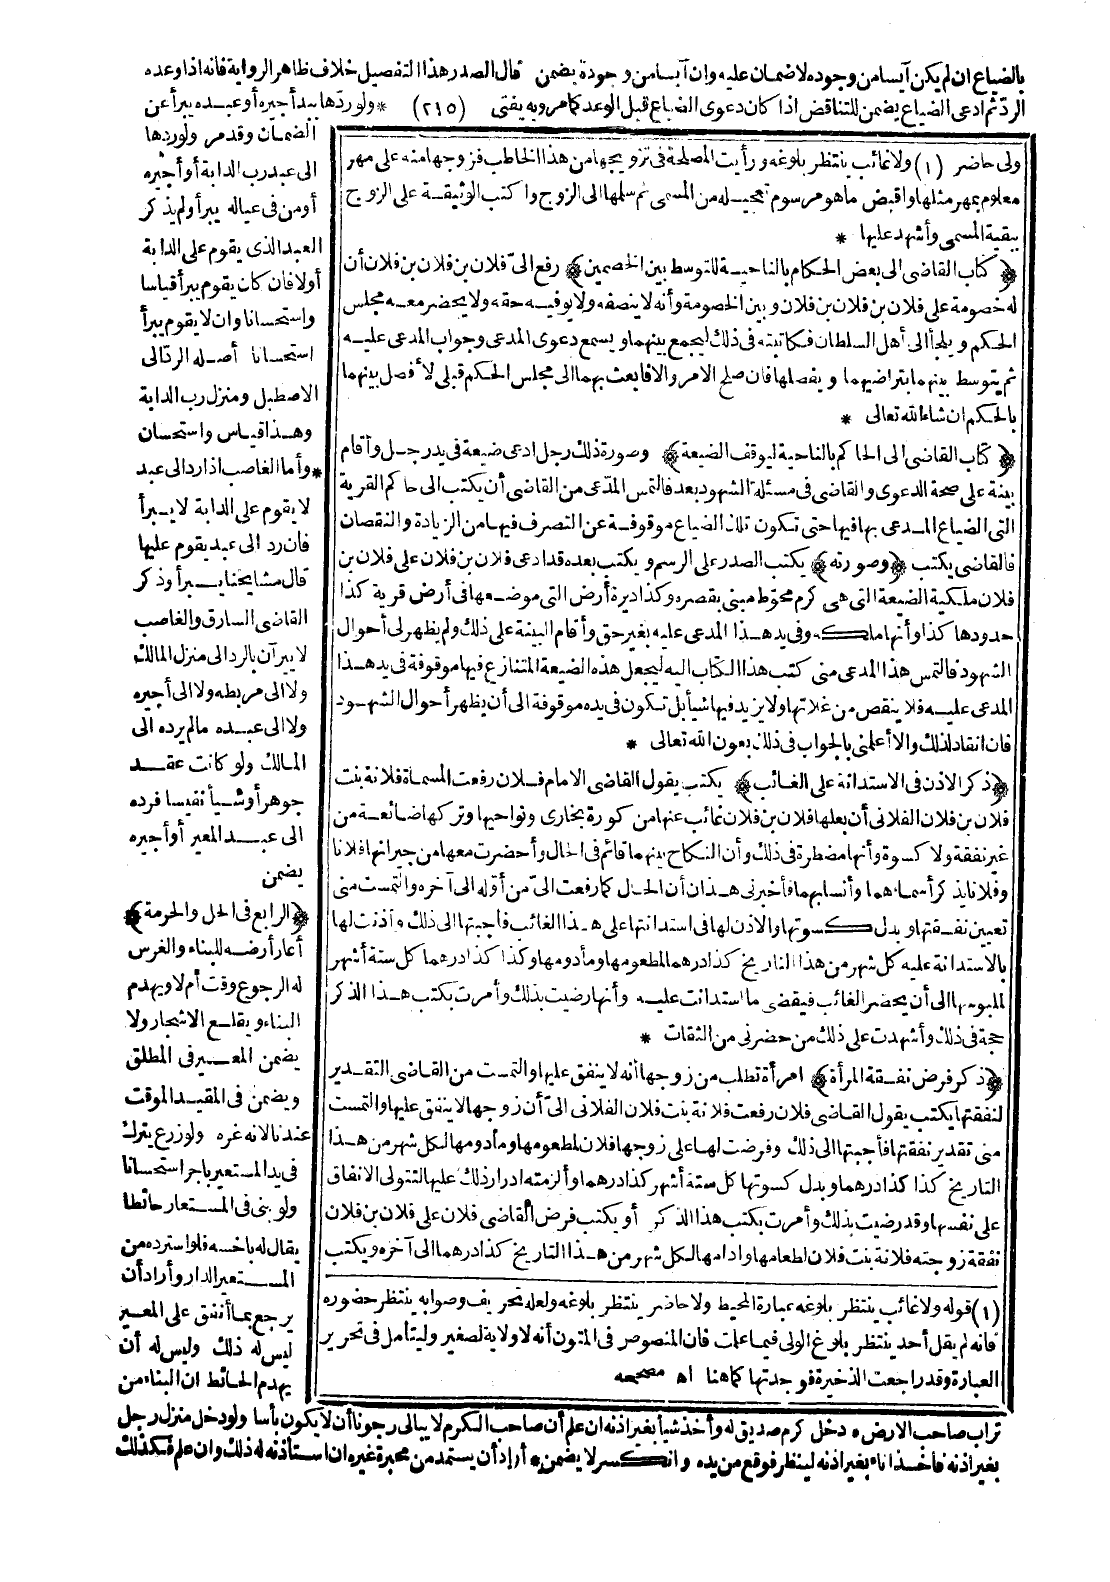 بالضياع ان لم يكن آيسا من وجوده لا ضمان عليه وان آيسا من وجوده يضمن قال الصدر هذا التفصيل خلاف ظاهر الرواية فانه اذا وعده
الرد ثم ادعى الضياع يضمن للتناقض اذا كان دعوى الضياع قبل الوعد كما مر وبه يفتى (٢١٥) * ولو ردها بيد أجيره أو عبده يبرأ عن
الضمان وقد مر ولو ردها
الى عبد رب الدابة أو أجيره
أو من فى عياله يبرأ ولم يذكر
العبد الذى يقوم على الدابة
أولا فان كان يقوم يبرأ قياسا
واستحسانا وان لا يقوم يبرأ
استحسانا أصله الرد الى
الاصطبل ومنزل رب الدابة
وهذا قياس واستحسان
* وأما الغاصب اذا رد الى عبد
لا يقوم على الدابة لا يبرأ
فان رد الى عبد يقوم عليها
قال مشايخنا يبرأ وذكر
القاضى السارق والغاصب
لا يبرآن بالرد الى منزل المالك
ولا الى مربطه ولا الى أجيره
ولا الى عبده ما لم يرده الى
المالك ولو كانت عقد
جوهر أو شيأ نفيسا فرده
الى عبد المعير أو أجيره
يضمن
﴿الرابع فى الحل والحرمة﴾
أعار أرضه للبناء والغرس
له الرجوع وقت أم لا ويهدم
البناء ويقلع الاشجار ولا
يضمن المعير فى المطلق
ويضمن فى المقيد الموقت
عندنا لانه غره ولو زرع يترك
فى يد المستعير باجر استحسانا
ولو بنى فى المستعار حائطا
يقال له باخسه فلو استرده من
المستعير الدار وأراد أن
يرجع بما أنفق على المعير
ليس له ذلك وليس له أن
يهدم الحائط ان البناء من
ولى حاضر (١) ولا غائب ينتظر بلوغه ورأيت المصلحة فى تزويجها من هذا الخاطب فزوجها منه على مهر
معلوم بمهر مثلها واقبض ما هو مرسوم تعجيله من المسمى ثم سلمها الى الزوج واكتب الوثيقة على الزوج
ببقية المسمى وأشهد عليها *
﴿كتاب القاضى الى بعض الحكام بالناحية للتوسط بين الخصمين﴾ رفع الىّ فلان بن فلان بن فلان أن
له خصومة على فلان بن فلان بن فلان وبين الخصومة وأنه لا ينصفه ولا يوفيه حقه ولا يحضر معه مجلس
الحكم ويلجأ الى أهل السلطان فكاتبته فى ذلك ليجمع بينهما ويسمع دعوى المدعى وجواب المدعى عليه
ثم يتوسط بينهما بتراضيهما ويفصلها فان صلح الامر والا فابعث بهما الى مجلس الحكم قبلى لأفصل بينهما
بالحكم ان شاء الله تعالى *
﴿كتاب القاضى الى الحاكم بالناحية ليوقف الضيعة﴾ وصورة ذلك رجل ادعى ضيعة فى يد رجل وأقام
بينة على صحة الدعوى والقاضى فى مسئلة الشهود بعد فالتمس المدعى من القاضى أن يكتب الى حاكم القرية
التى الضياع المدعى بها فيها حتى تكون تلك الضياع موقوفة عن التصرف فيها من الزيادة والنقصان
فالقاضى يكتب ﴿وصورته﴾ يكتب الصدر على الرسم ويكتب بعده قد ادعى فلان بن فلان على فلان بن
فلان ملكية الضيعة التى هى كرم محوّط مبنى بقصره وكذا ديرة أرض التى موضعها فى أرض قرية كذا
حدودها كذا وأنها ملكه وفى يد هذا المدعى عليه بغير حق وأقام البينة على ذلك ولم يظهر لى أحوال
الشهود فالتمس هذا المدعى منى كتب هذا الكتاب اليه ليجعل هذه الضيعة المتنازع فيها موقوفة فى يد هذا
المدعى عليه فلا ينقص من غلاتها ولا يزيد فيها شيأ بل تكون فى يده موقوفة الى أن يظهر أحوال الشهود
فان انقاد لذلك والا أعلمنى بالجواب فى ذلك بعون الله تعالى *
﴿ذكر الاذن فى الاستدانة على الغائب﴾ يكتب يقول القاضى الامام فلان رفعت المسماة فلانة بنت
فلان بن فلان الفلانى أن بعلها فلان بن فلان غائب عنها من كورة بخارى ونواحيها وتركها ضائعة من
غير نفقة ولا كسوة وأنها مضطرة فى ذلك وأن النكاح بينهما قائم فى الحال وأحضرت معها من جيرانها فلانا
وفلانا يذكر أسماءهما وأنسابهما فأخبرنى هذان أن الحال كما رفعت الىّ من أوله الى آخره والتمست منى
تعيين نفقتها وبدل كسوتها والاذن لها فى استدانتها على هذا الغائب فأجبتها الى ذلك وأذنت لها
بالاستدانة عليه كل شهر من هذا التاريخ كذا درهما لمطعومها ومأدومها وكذا كذا درهما كل ستة أشهر
لملبوسها الى أن يحضر الغائب فيقضى ما استدانت عليه وأنها رضيت بذلك وأمرت بكتب هذا الذكر
حجة فى ذلك وأشهدت على ذلك من حضرنى من الثقات *
﴿ذكر فرض نفقة المرأة﴾ امرأة تطلب من زوجها أنه لا ينفق عليها والتمست من القاضى التقدير
لنفقتها يكتب يقول القاضى فلان رفعت فلانة بنت فلان الفلانى الىّ أن زوجها لا ينفق عليها والتمست
منى تقدير نفقتها فأجبتها الى ذلك وفرضت لها على زوجها فلان لمطعومها ومأدومها لكل شهر من هذا
التاريخ كذا كذا درهما وبدل كسوتها كل ستة أشهر كذا درهما وألزمته ادرار ذلك عليها لتتولى الانفاق
على نفسها وقد رضيت بذلك وأمرت بكتب هذا الذكر أو يكتب فرض القاضى فلان على فلان بن فلان
نفقة زوجته فلانة بنت فلان لطعامها وادامها لكل شهر من هذا التاريخ كذا درهما الى آخره ويكتب
(١) قوله ولا غائب ينتظر بلوغه عبارة المحيط ولا حاضر ينتظر بلوغه ولعله تحريف وصوابه ينتظر حضوره
فانه لم يقل أحد ينتظر بلوغ الولى فيما علمت فان المنصوص فى المتون أنه لا ولاية لصغير وليتأمل فى تحرير
العبارة وقد راجعت الذخيرة فوجدتها كما هنا اه مصححه
تراب صاحب الارض * دخل كرم صديق له وأخذ شيأ بغير اذنه ان علم أن صاحب الكرم لا يبالى رجونا أن لا يكون بأسا ولو دخل منزل رجل
بغير اذنه فأخذ اناء بغير اذنه لينظر فوقع من يده وانكسر لا يضمن * أراد أن يستمد من محبرة غيره ان استأذنه له ذلك وان علم فكذلك